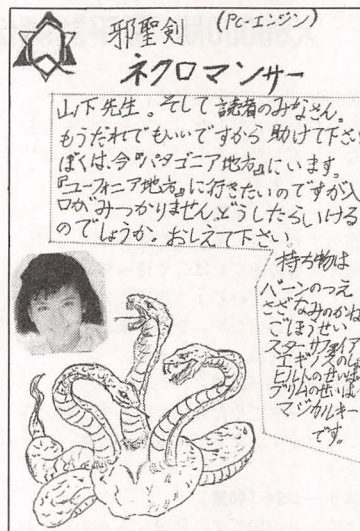 邪聖剣
(PC-エンジン)
ネクロマンサー
山下先生。そして読者のみなさん。
もうだれでもいいですから助けて下さい
ぼくは、今『パタゴニア地方』にいます。
『ユーフォニア地方』に行きたいのですが入
口がみつかりません。どうしたらいける
のでしょうか。おしえて下さい。
持ち物は
バーンのつえ
さざなみのかね
ごほうせい
スターサファイア
プリムのせいば
マジカルキー
です。